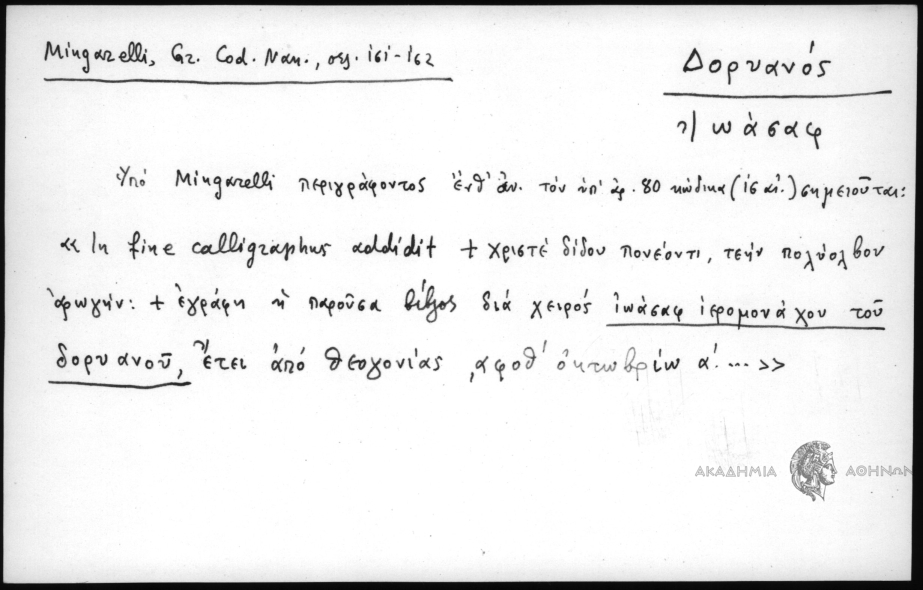 Mingarelli, Gr. Cod. Nan., σελ. 161-162
Δορυανός
Ἰωάσαφ
Ὑπό Mingarelli περιγράφοντος ἔνθ' ἀν. τόν ὑπ' ἀρ. 80 κώδικα (ΙϚ αἰ.) σημειοῦται:
« In fine calligraphus addidit + χριστέ δίδου πονέοντι, τεήν πολύολβον
ἀρωγήν: + ἐγράφη ἡ παροῦσα βίβλος διά χειρός ἰωάσαφ ἱερομονάχου τοῦ
δορυανοῦ, ἔτει ἀπό θεογονίας ͵αφοθ' ὀκτωβρίω α'. ... »
ΑΚΑΔΗΜΙΑ ΑΘΗΝΩΝ